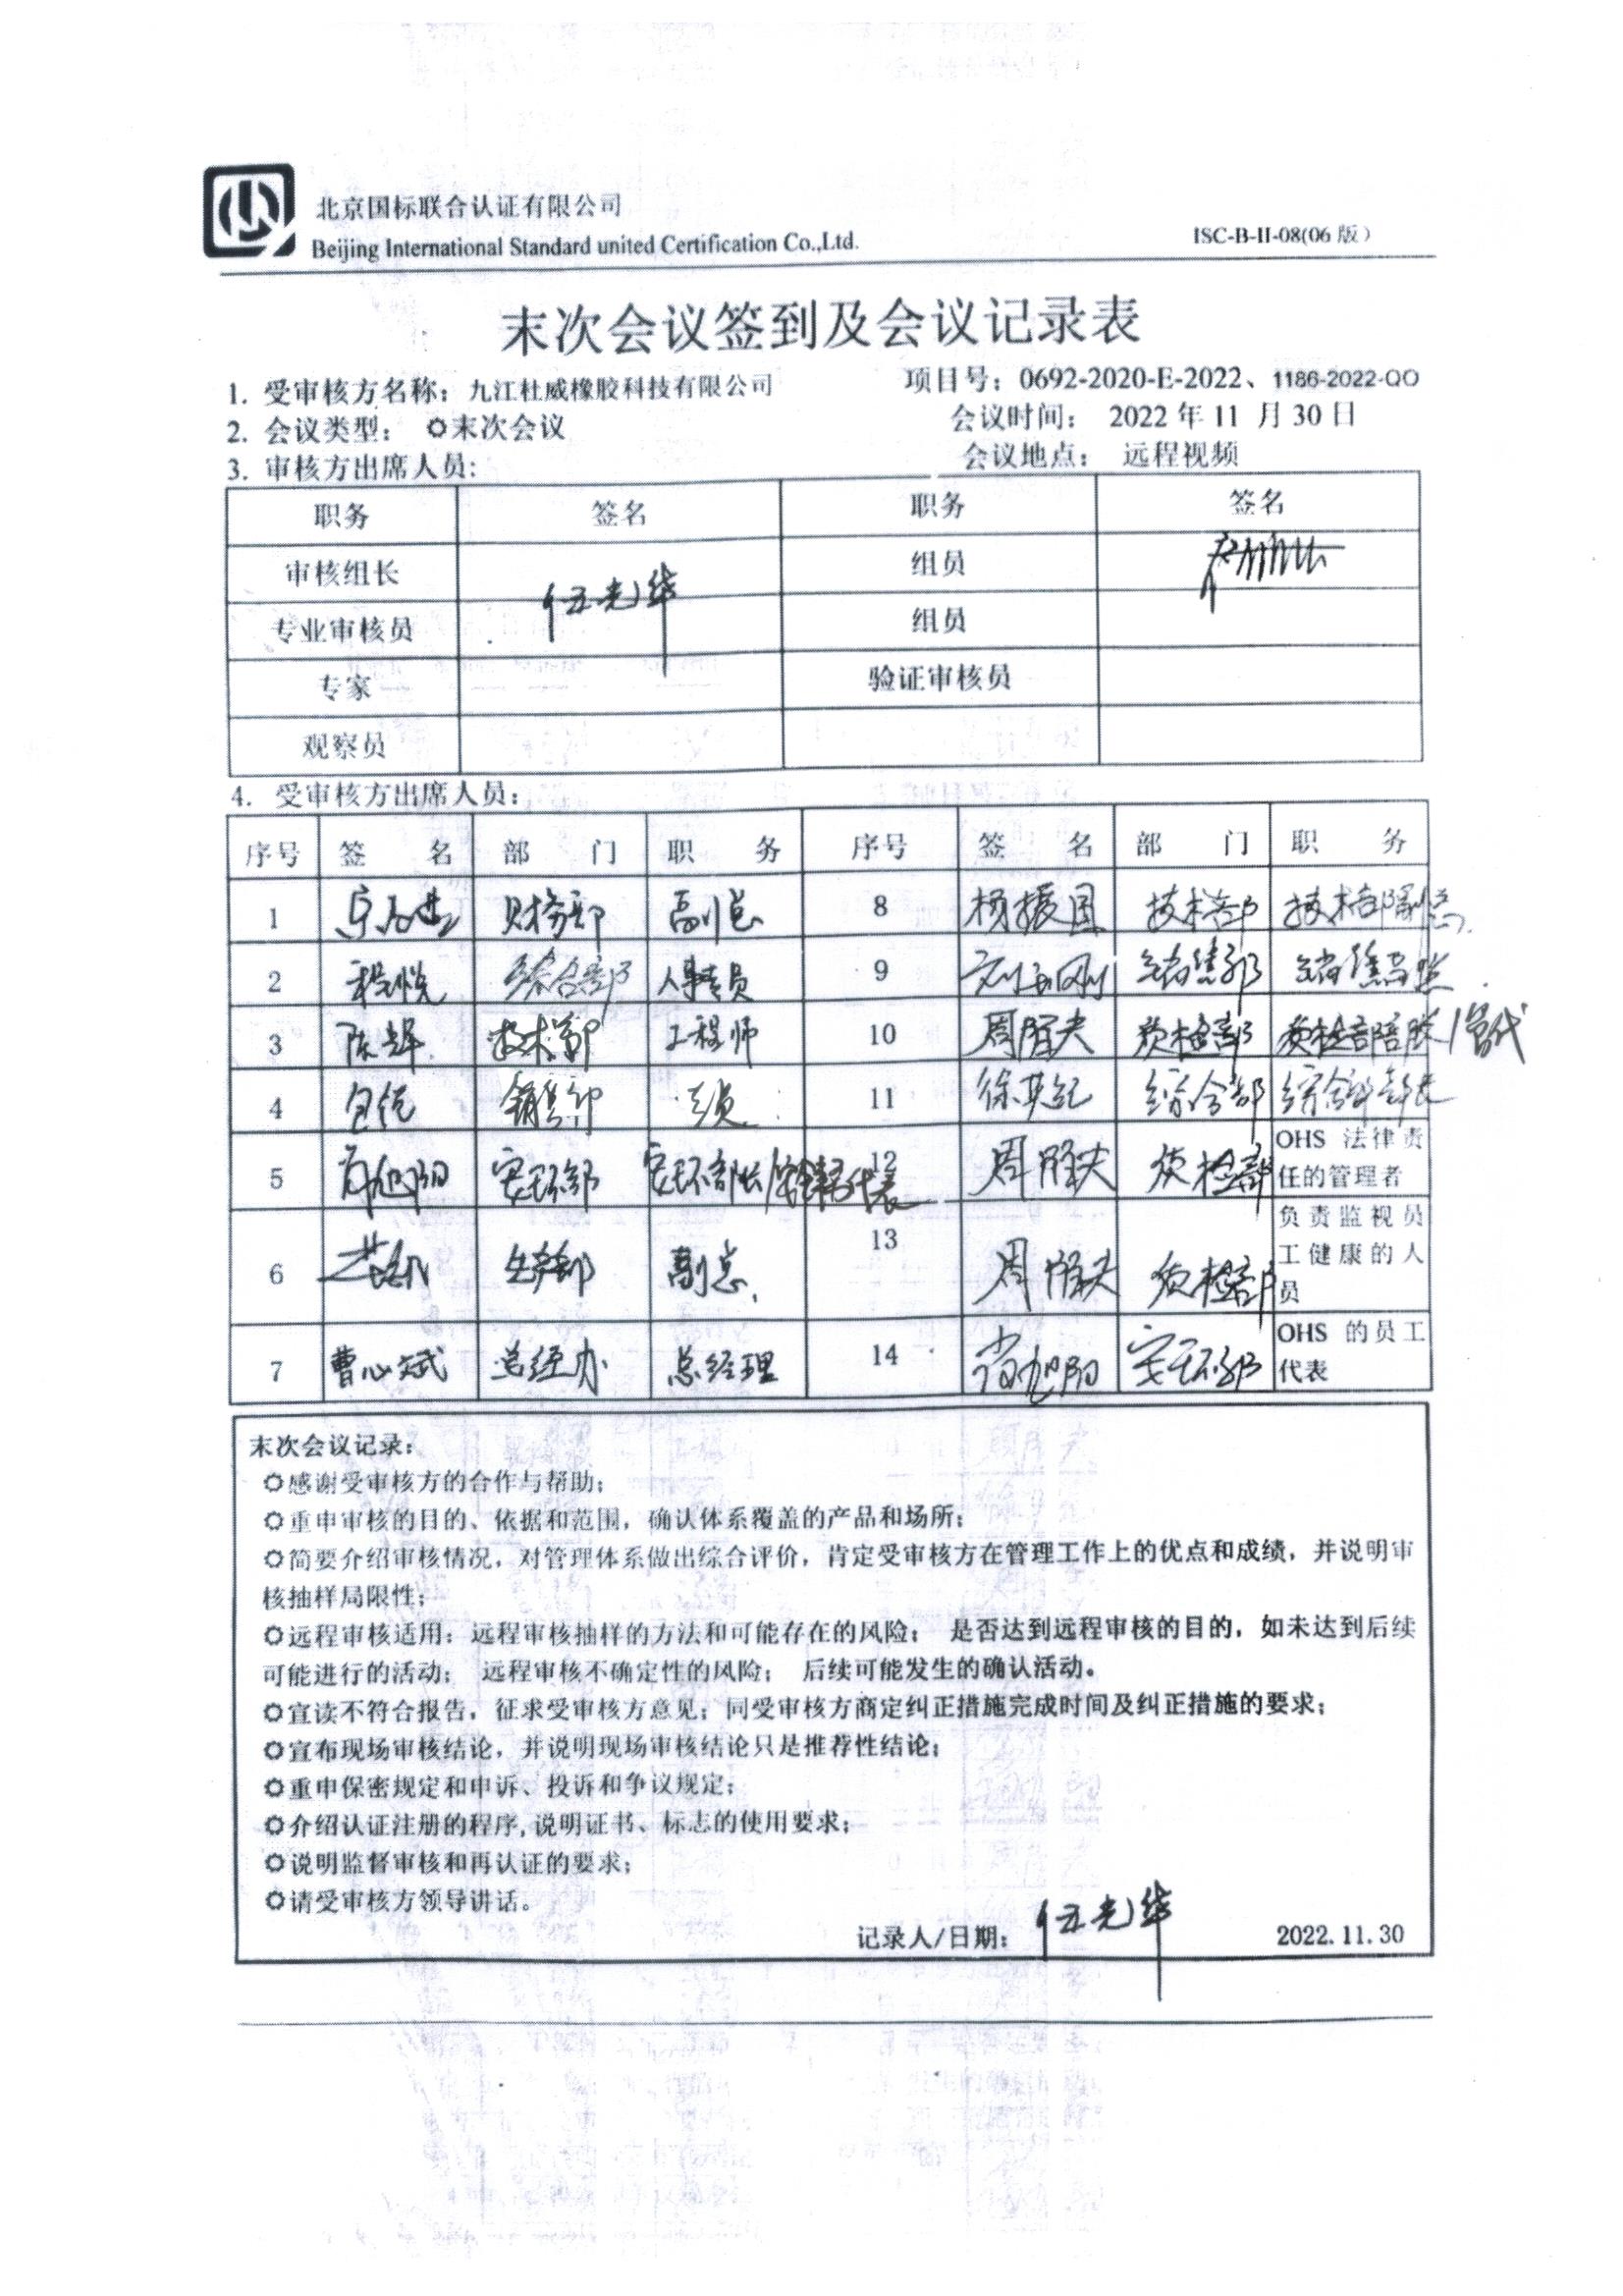 北京国标联合认证有限公司
Beijing International Standard united Certification Co.,Ltd.
ISC-B-II-08(06 版)
末次会议签到及会议记录表
1. 受审核方名称：九江杜威橡胶科技有限公司 项目号：0692-2020-E-2022、1186-2022-QO
2. 会议类型： 末次会议 会议时间： 2022 年 11 月 30 日
3. 审核方出席人员: 会议地点： 远程视频
职务 签名 职务 签名
审核组长 伍光华 组员
专业审核员 组员
专家 验证审核员
观察员
4. 受审核方出席人员：
序号 签 名 部 门 职 务 序号 签 名 部 门 职 务
1 财务部 副总 8 杨振国 技术部 技术部副总
2 程悦 综合部 人事专员 9
3 陈辉 技术部 工程师 10 周 质检部 质检部
4 销售部 11 徐 综合部 综合部部长
5 安环部 安环部长 代表 12 周 质检部 OHS 法律责
任的管理者
6 生产部 副总 13 周 质检部 负责监视员
工健康的人
员
7 曹心斌 总经办 总经理 14 安环部 OHS 的员工
代表
末次会议记录：
感谢受审核方的合作与帮助；
重申审核的目的、依据和范围，确认体系覆盖的产品和场所；
简要介绍审核情况，对管理体系做出综合评价，肯定受审核方在管理工作上的优点和成绩，并说明审
核抽样局限性；
远程审核适用：远程审核抽样的方法和可能存在的风险； 是否达到远程审核的目的，如未达到后续
可能进行的活动； 远程审核不确定性的风险； 后续可能发生的确认活动。
宣读不符合报告，征求受审核方意见；同受审核方商定纠正措施完成时间及纠正措施的要求；
宣布现场审核结论，并说明现场审核结论只是推荐性结论；
重申保密规定和申诉、投诉和争议规定；
介绍认证注册的程序,说明证书、标志的使用要求；
说明监督审核和再认证的要求；
请受审核方领导讲话。
记录人/日期： 伍光华 2022.11.30